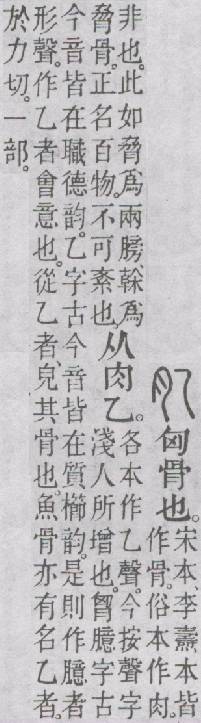 肊匈骨也。宋本、李燾本皆
作骨。俗本作肉。
非也。此如脅爲兩膀、榦爲
脅骨。正名百物。不可紊也
从肉乙。各本作乙聲。今按聲字
淺人所增也。胷臆字古
今音皆在職德韵。乙字古今音皆在質櫛韵。是則作臆者
形聲。作乙者會意也。從乙者、皃其骨也。魚骨亦有名乙者。
於力切。一部。